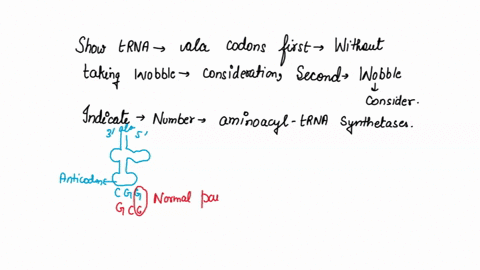 Show tRNA → ala codons first → Without
taking Wobble → consideration, Second → Wobble
↓
Consider.
Indicate → Number → aminoacyl-tRNA Synthetases.
3' ala 5'
Anticodon
C G G
G C G Normal pai